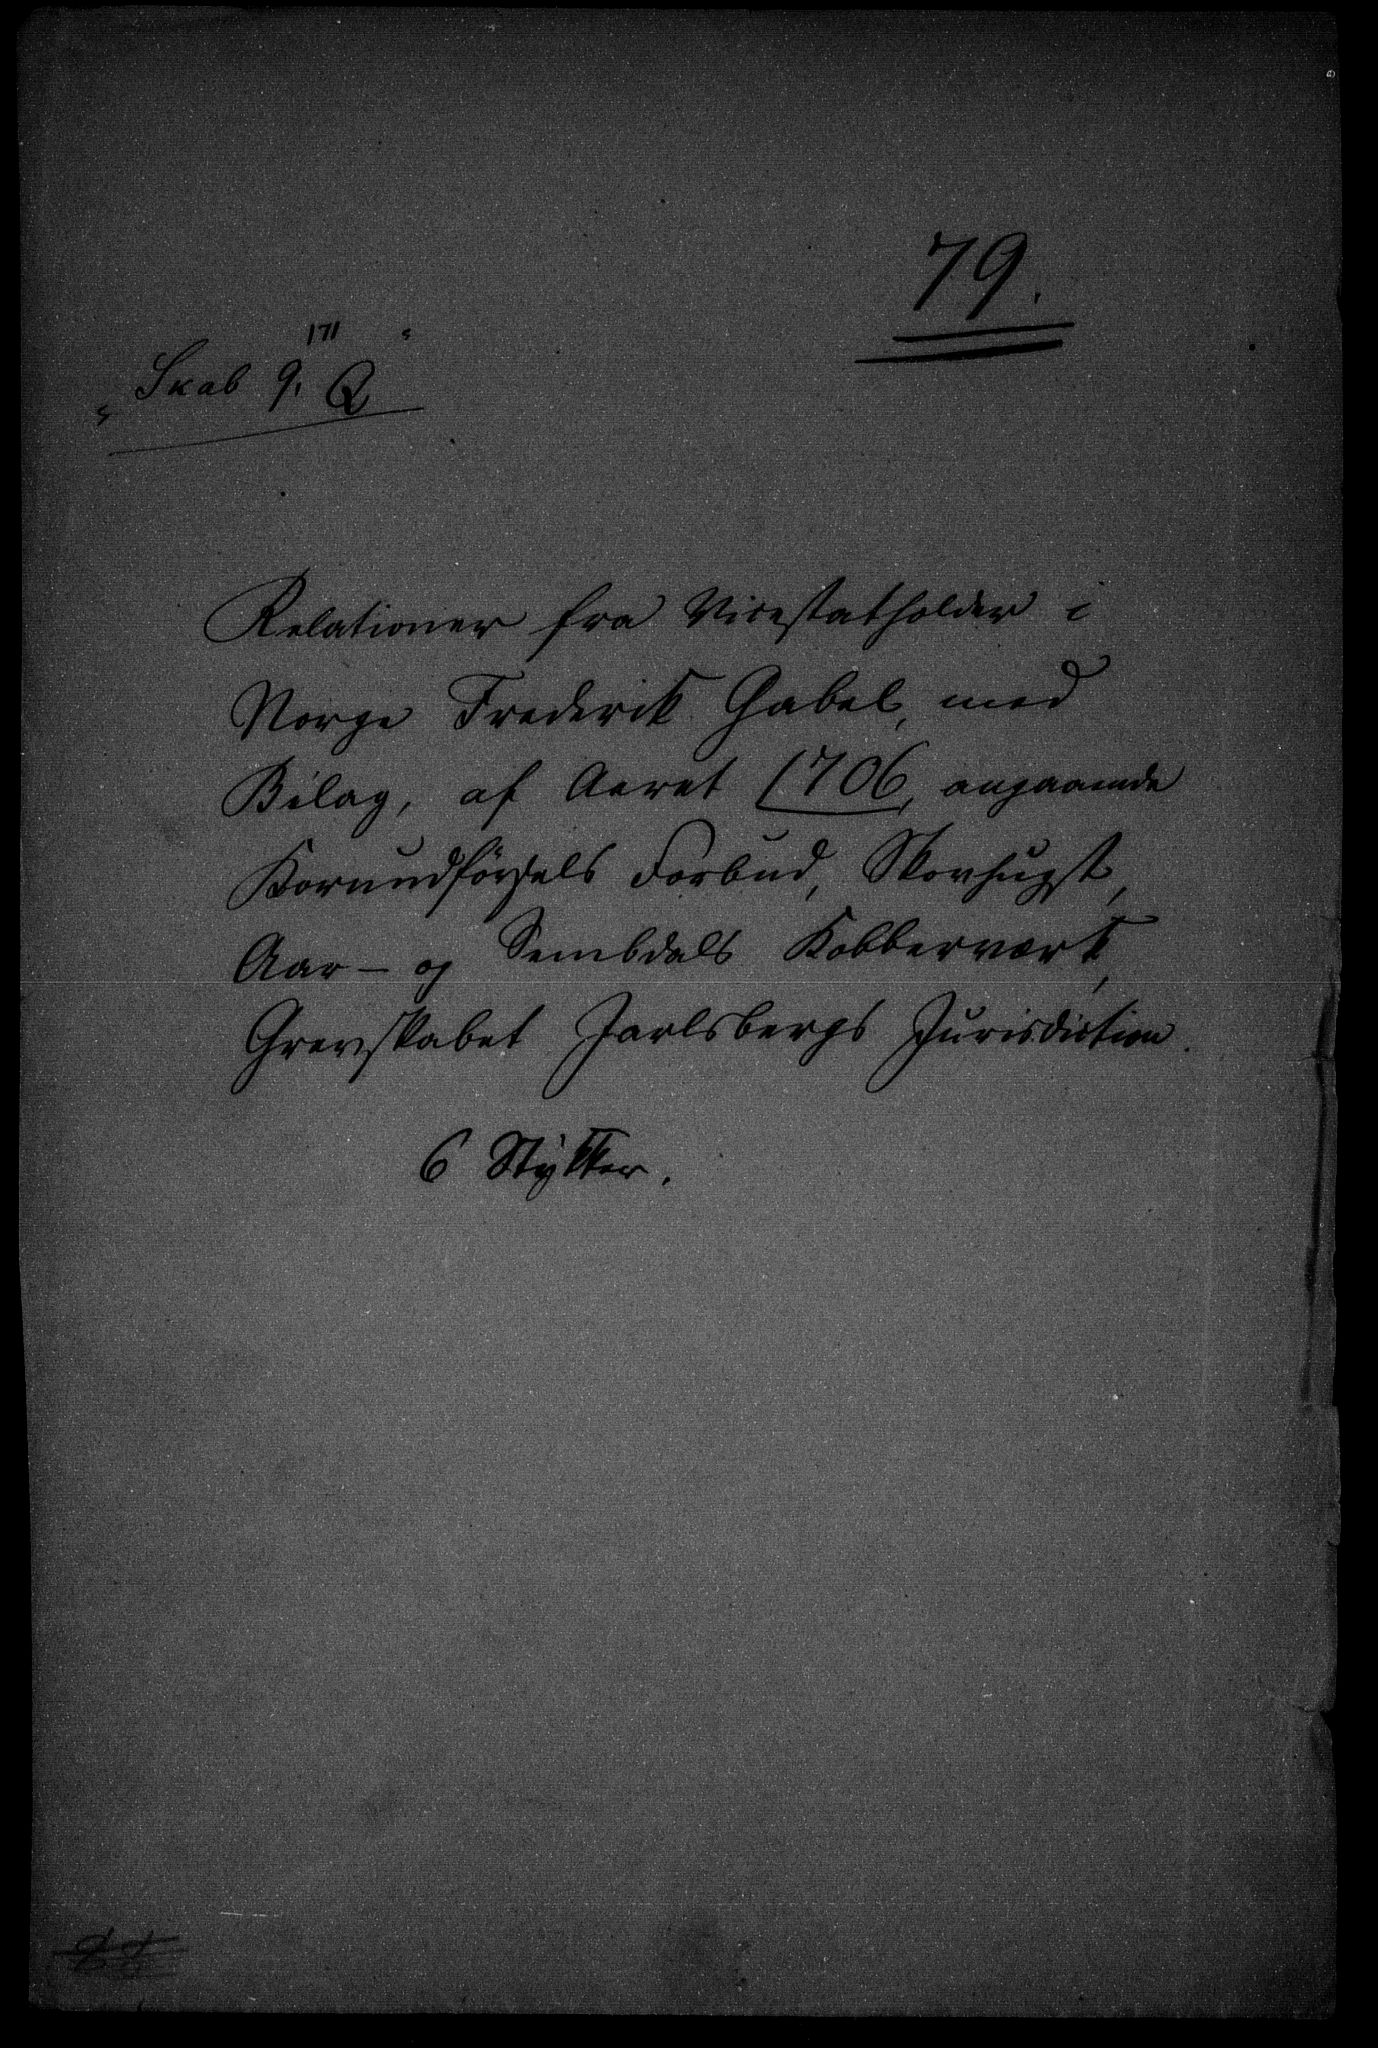 79.
171
"Skab 9. Q"
Relationer fra Vicestatholder i
Norge Frederik Gabel, med
Bilag, af Aaret 1706, angaaende
Kornudförsels Forbud, Skovhugst,
Aar- og Sembdals Kobberværk,
Grevskabet Jarlsbergs Jurisdiction.
6 Stÿkker.